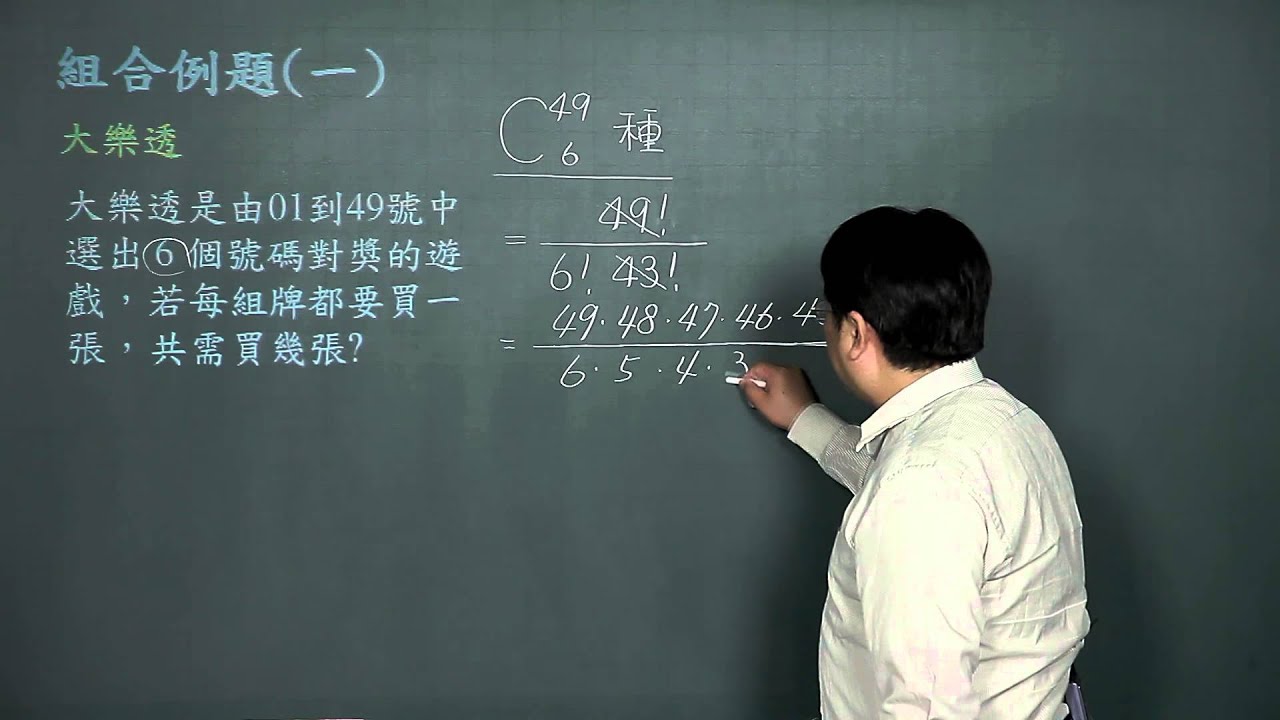 組合例題(一)
大樂透
大樂透是由01到49號中
選出6個號碼對獎的遊
戲，若每組牌都要買一
張，共需買幾張?
C 49 6 種
= 49! / 6! 43!
= 49·48·47·46·4 / 6·5·4·3